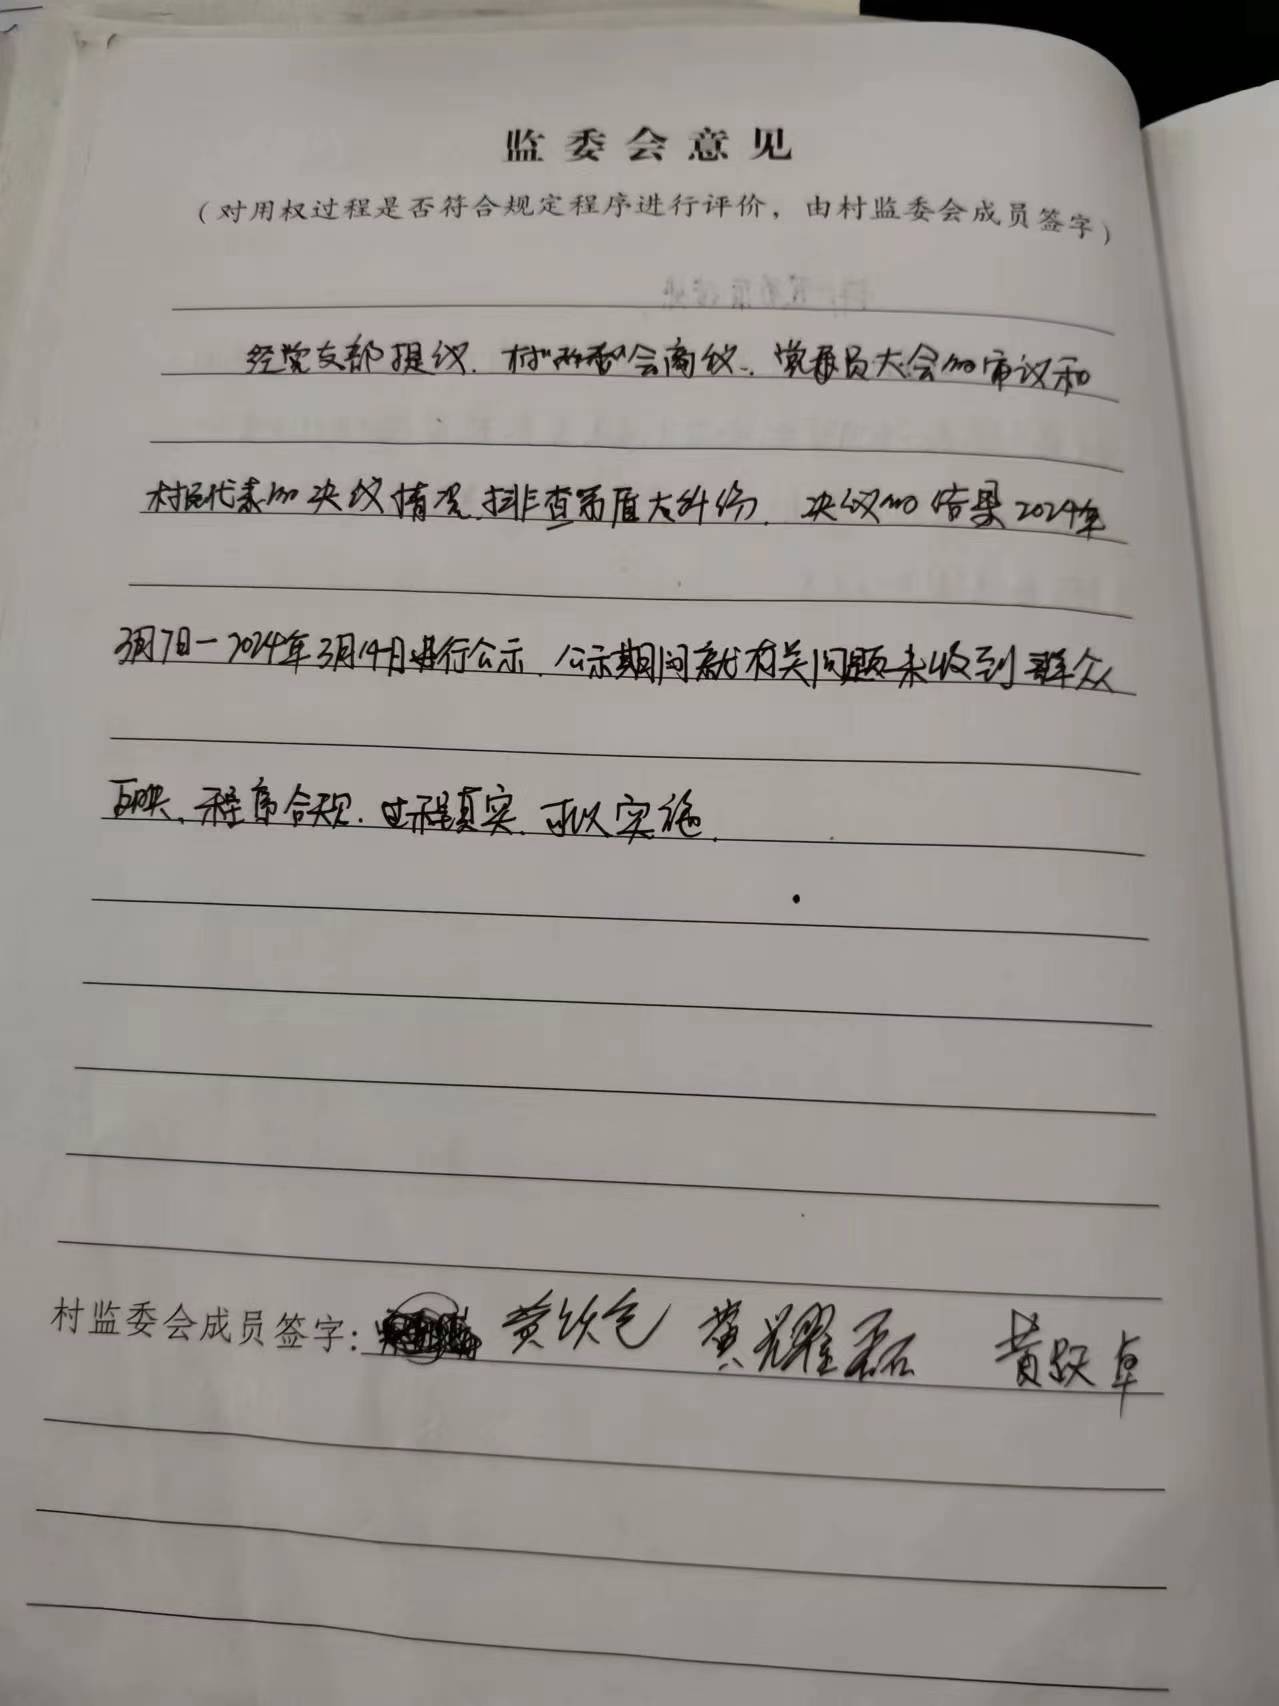 监委会意见
（对用权过程是否符合规定程序进行评价，由村监委会成员签字）
经党支部提议、村"两委"会商议、党员大会的审议和
村民代表的决议情况、排查矛盾大纠纷、决议的结果2024年
3月7日一2024年3月14日进行公示、公示期间就有关问题未收到群众
反映、程序合规、过程真实、可以实施.
村监委会成员签字: 黄钦 黄耀磊 黄跃卓